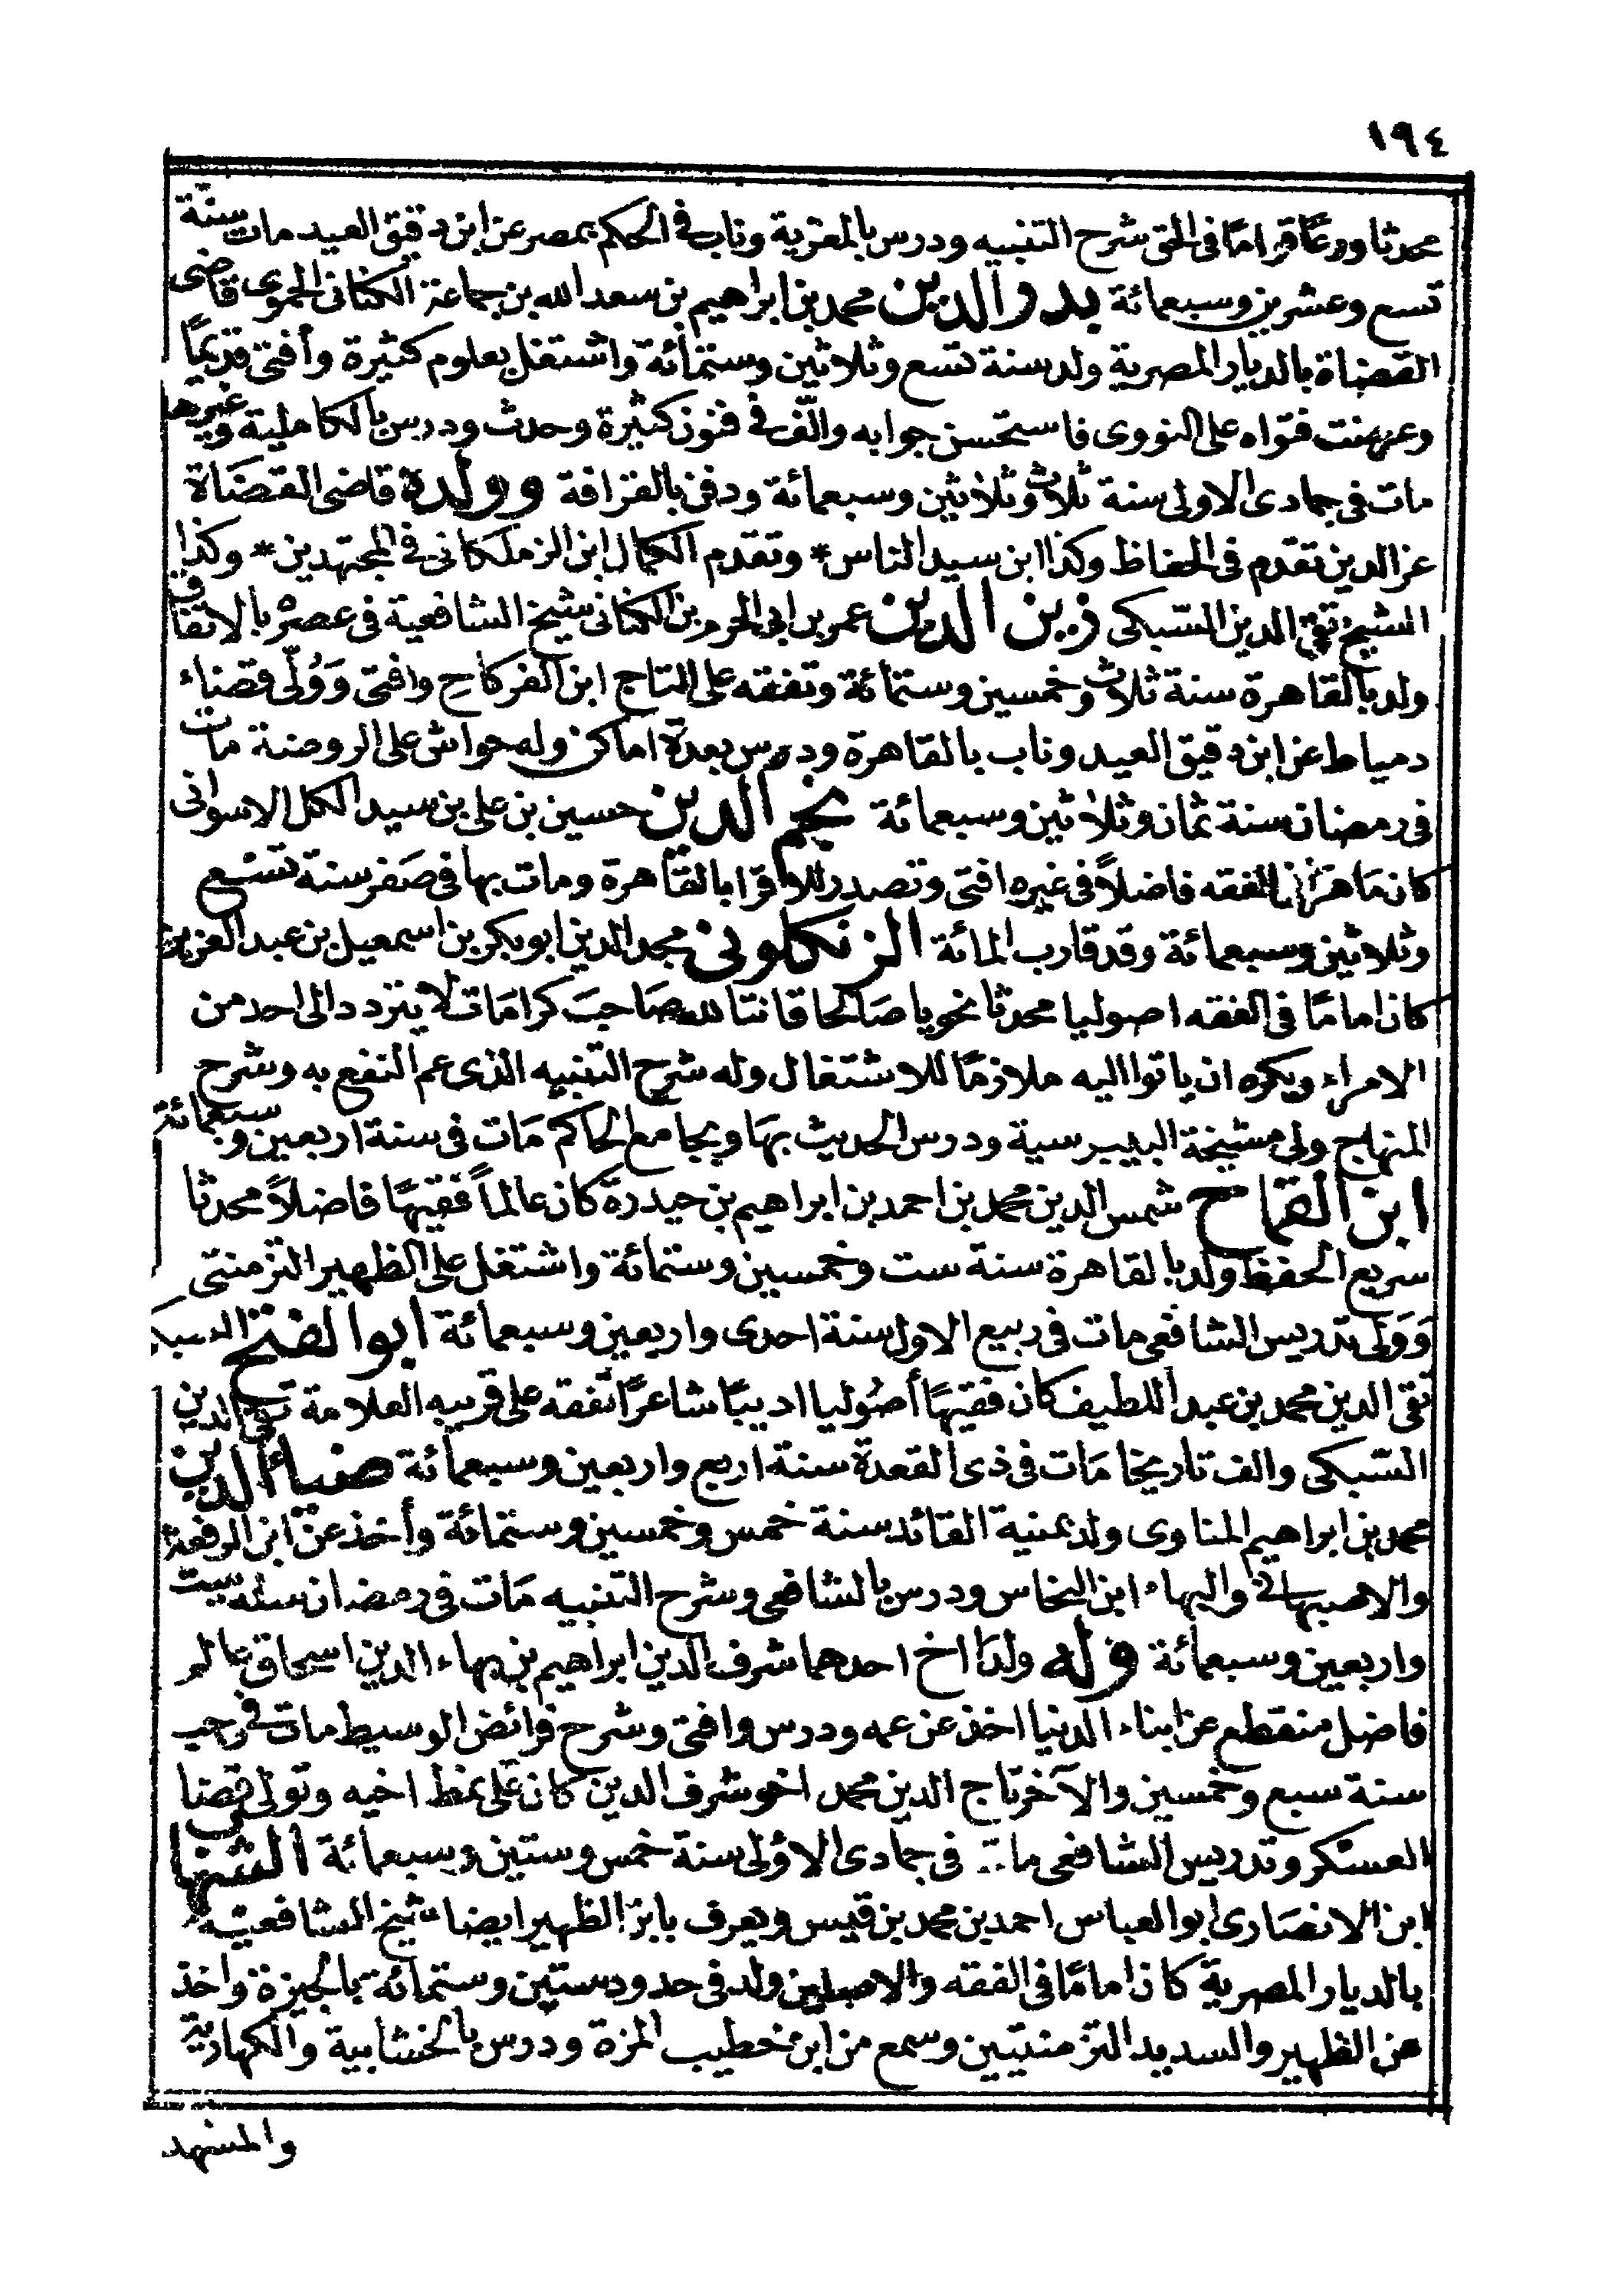 ١٩٤
محدثا ورعًا قواما فى الحق شرح التنبيه ودرس بالمعزية وناب فى الحكم بمصر عن ابن دقيق العيد مات سنة
تسع وعشرين وسبعمائة بدر الدين محمد بن ابراهيم بن سعد الله بن جماعة الكنانى الحموى قاضى
القضاة بالديار المصرية ولد سنة تسع وثلاثين وستمائة واشتغل بعلوم كثيرة وأفتى قديمًا
وعرضت فتواه على النووى فاستحسن جوابه والّف فى فنون كثيرة وحدث ودرس بالكاملية وغيرها
مات فى جمادى الاولى سنة ثلاث وثلاثين وسبعمائة ودفن بالقرافة وولده قاضى القضاة
عز الدين تقدم فى الحفاظ وكذا ابن سيد الناس * وتقدم الكمال ابن الزملكانى فى المجتهدين * وكذا
الشيخ تقى الدين السّبكى زين الدين عمر بن ابى الحرم بن الكنانى شيخ الشافعية فى عصره بالاتفاق
ولد بالقاهرة سنة ثلاث وخمسين وستمائة وتفقه على التاج ابن الفركاح وافتى وَوُلّى قضاء
دمياط عن ابن دقيق العيد وناب بالقاهرة ودرس بعدة اماكن وله حواش على الروضة مات
فى رمضان سنة ثمان وثلاثين وسبعمائة نجم الدين حسين بن على بن سيد الكل الاسوانى
كان مَاهرًا فى الفقه فاضلاً فى غيره افتى وتصدر للاقرا بالقاهرة ومات بها فى صَفر سنة تسْع
وثلاثين وسبعمائة وقد قارب المائة الزنكلونى مجد الدين ابو بكر بن اسمعيل بن عبد العزيز
كان امامًا فى الفقه اصوليا محدثا نحويا صَالحا قانتا لله صَاحبَ كرامَات لا يتردد الى احد من
الامراء ويكره ان ياتوا اليه ملازمًا للاشتغال وله شرح التنبيه الذى عم النفع به وشرح
المنهاج ولى مشيخة البيبرسية ودرس الحديث بهَا وبجامع الحاكم مَات فى سنة اربعين وسبعمائة
ابن القماح شمس الدين محمد بن احمد بن ابراهيم بن حيدرة كان عالماً فقيهًا فاضلاً محدثا
سريع الحفظ ولد بالقاهرة سنة ست وخمسين وستمائة واشتغل على الظهير التزمنتى
وَوَلى تدريس الشافعى مات فى ربيع الاول سنة احدى واربعين وسبعمائة ابو الفتح السبكى
تقى الدين محمد بن عبد اللطيف كان فقيهًا أصُوليا اديبًا شاعرًا تفقه على قريبه العلامة تقى الدين
السّبكى والف تاريخا مَات فى ذى القعدة سنة اربع واربعين وسبعمائة ضياء الدين
محمد بن ابراهيم المناوى ولد بمنية القائد سنة خمس وخمسين وستمائة وأخذ عن ابن الرفعة
والاصبهانى والبهاء ابن النحاس ودرس بالشافعى وشرح التنبيه مَات فى رمضان سنة ست
واربعين وسبعمائة وله ولدَا اخ احدهما شرف الدين ابراهيم بن بهاء الدين اسحاق عالم
فاضل منقطع عن ابناء الدنيا اخذ عن عمه ودرس وافتى وشرح فرائض الوسيط مات فى رجب
سنة سبع وخمسين والآخر تاج الدين محمد اخو شرف الدين كان عَلى نمط اخيه وتولى قضا
العسْكر وتدريس الشافعى مات فى جمادى الاولى سنة خمس وستين وسبعمائة الشهاب
ابن الانصَارى ابو العباس احمد بن محمد بن قيس ويعرف بابن الظهير ايضا شيخ الشافعيّة
بالديار المصرية كان امامًا فى الفقه والاصلين ولد فى حدود ستين وستمائة بالجيزة واخذ
عن الظهير والسديد التزمنتيين وسمع من ابن خطيب المزة ودرس بالخشابية والكهارية
والمشهد